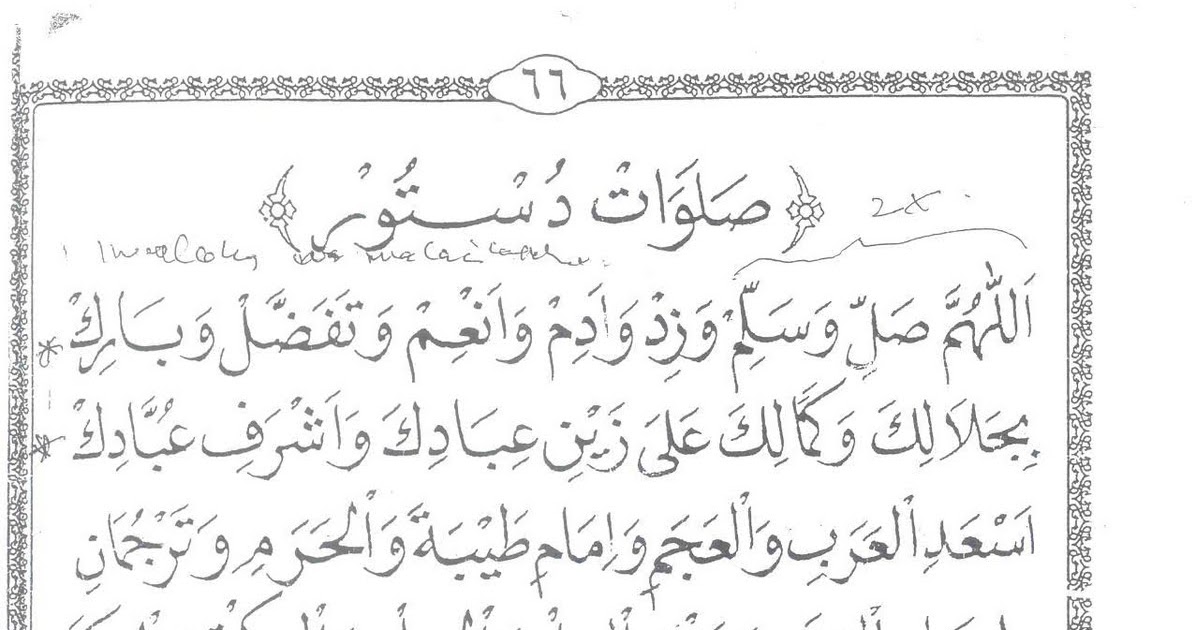 ٦٦
صَلَوَاتْ دُسْتُوْرْ
2x
اَللّٰهُمَّ صَلِّ وَسَلِّمْ وَزِدْ وَاَدِمْ وَاَنْعِمْ وَتَفَضَّلْ وَبَارِكْ *
بِجَلَالِكَ وَكَمَالِكَ عَلَى زَيْنِ عِبَادِكَ وَاَشْرَفِ عُبَّادِكْ *
اَسْعَدِ الْعَرَبِ وَالْعَجَمِ وَاِمَامِ طَيْبَةَ وَالْحَرَمِ وَتَرْجُمَانِ